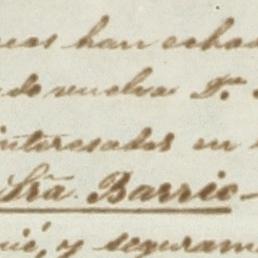 han echado
de vuelva Dn.
interesados en
Sra. Barrio-
y seguram